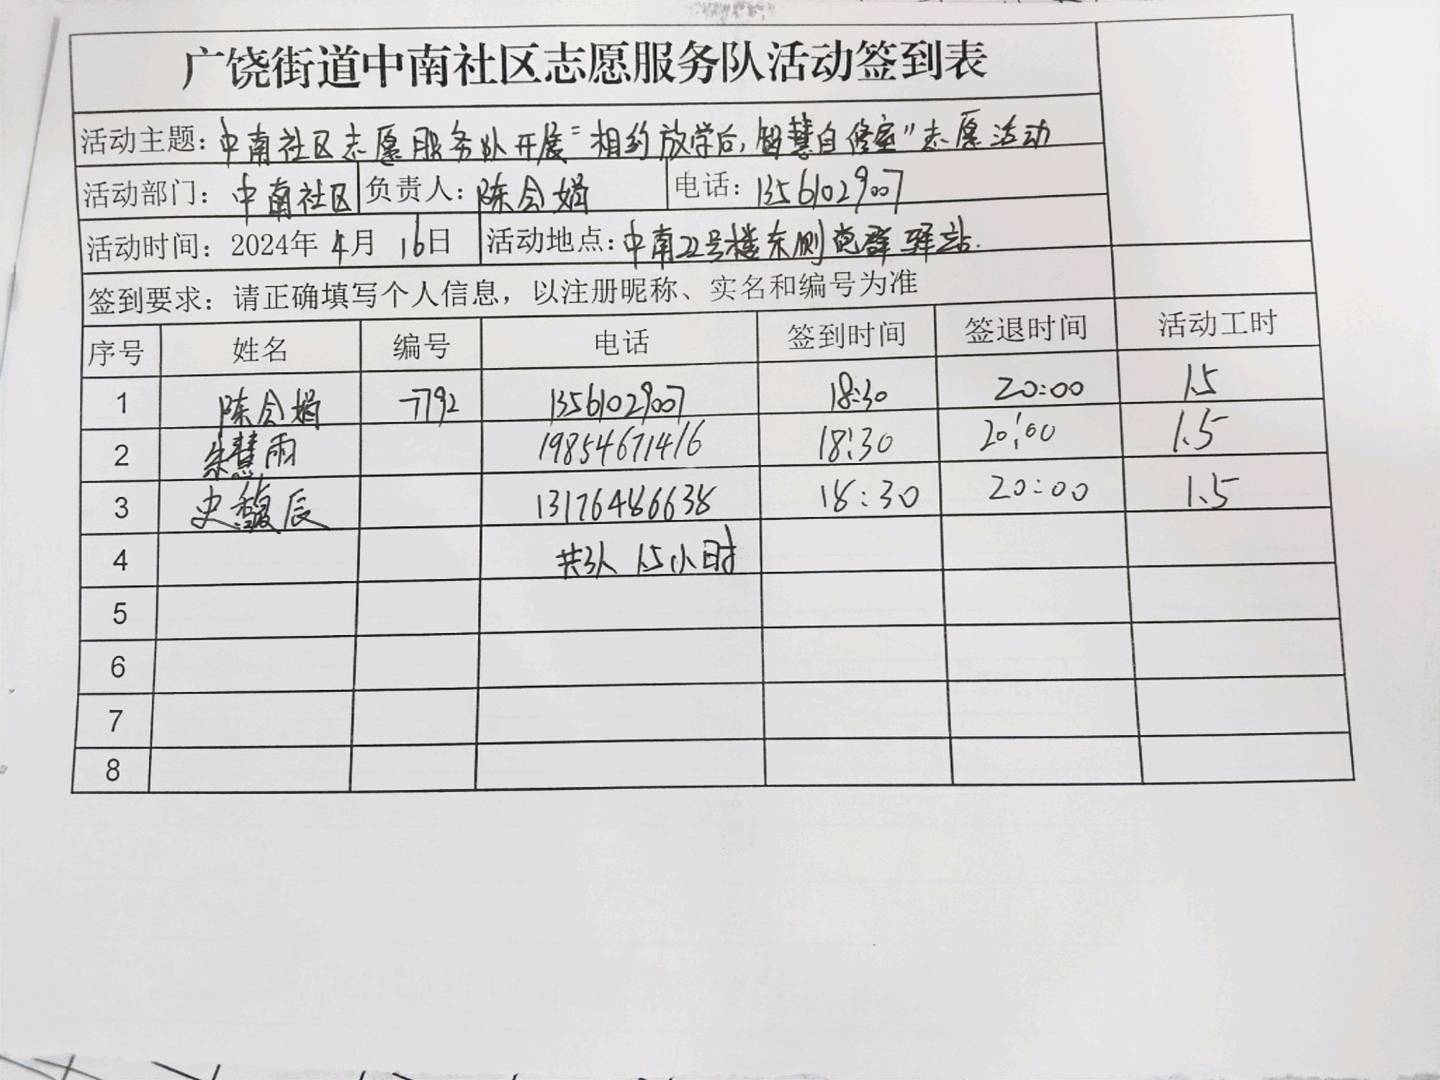 广饶街道中南社区志愿服务队活动签到表
活动主题：中南社区志愿服务队开展“相约放学后，智慧自修室”志愿活动
活动部门：中南社区 负责人：陈会娟 电话：13561029007
活动时间：2024年4月16日 活动地点：中南22号楼东侧党群驿站.
签到要求：请正确填写个人信息，以注册昵称、实名和编号为准
序号 姓名 编号 电话 签到时间 签退时间 活动工时
1 陈会娟 7792 13561029007 18:30 20:00 1.5
2 朱慧雨 19854671416 18:30 20:00 1.5
3 史馥辰 13176486638 18:30 20:00 1.5
4 共3人 1.5小时
5
6
7
8